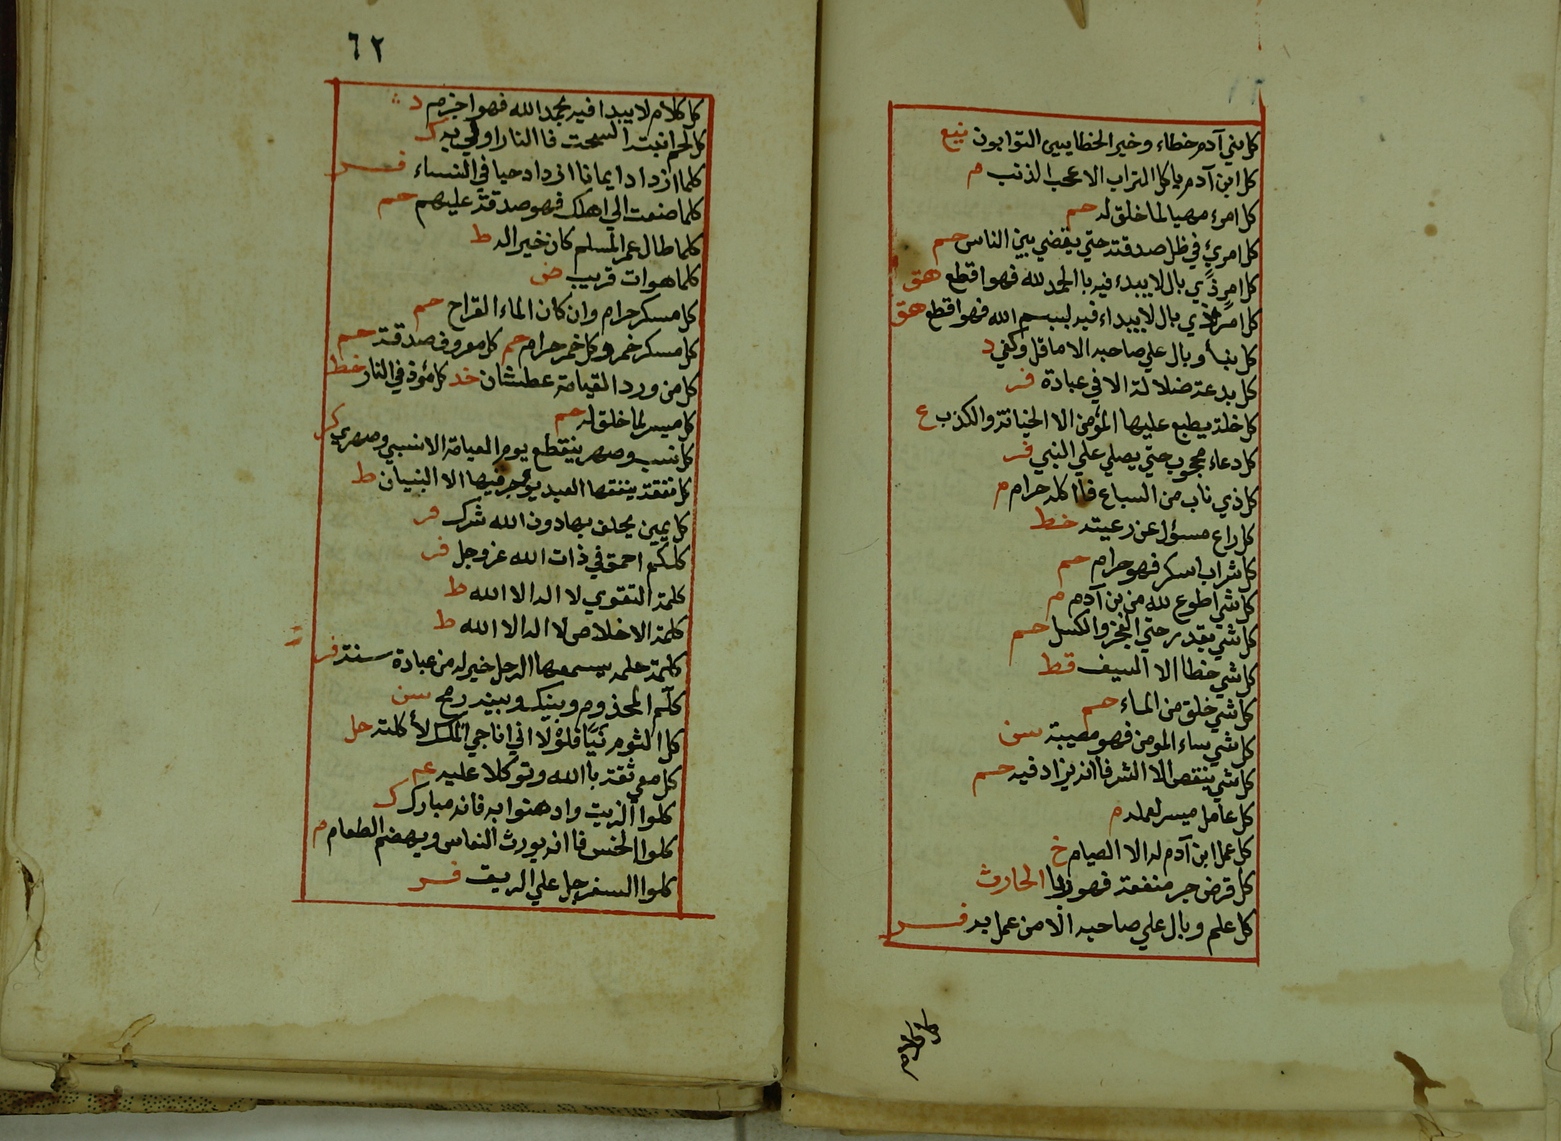 كل بني آدم خطاء وخير الخطايين التوابون
كل ابن آدم ياكل التراب الا عجب الذنب م
كل امرء مهيا لما خلق له حم
كل امرئ في ظل صدقته حتي يقضي بين الناس حم
كل امر ذي بال لا يبدء فيه با الحمد لله فهو اقطع هق
كل امر ذي بال لا يبداء فيه ببسم الله فهو اقطع هق
كل بناء وبال علي صاحبه الا ما قل وكفي د
كل بدعة ضلالة الا في عبادة فر
كل خلة يطبع عليها المؤمن الا الخيانة والكذب ع
كل دعاء محجوب حتي يصلي علي النبي فر
كل ذي ناب من السباع فا اكله حرام م
كل راع مسؤل عن رعيته خط
كل شراب اسكر فهو حرام حم
كل شئ اطوع لله من بن آدم م
كل شي بقدر حتي العجز والكسل حم
كل شي خطا الا السيف قط
كل شي خلق من الماء حم
كل شي ساء المومن فهو مصيبة سن
كل شي ينقص الا الشر فا انه يزاد فيه حم
كل عامل ميسر لعمله م
كل عمل ابن آدم له الا الصيام خ
كل قرض جر منفعة فهو ربا الحارث
كل علم وبال علي صاحبه الا من عمل به فر
كل كلام
٦٢
كل كلام لا يبدا فيه بحمد الله فهو اجزم د
كل لحم انبت السحت فا النار اولي به ك
كلما ازداد ايمانا ازداد حبا في النساء فر
كلما صنعت الي اهلك فهو صدقة عليهم حم
كلما طال عمر المسلم كان خير اله ط
كلما هو ات قريب ض
كل مسكر حرام وان كان الماء القراح حم
كل مسكر خمر وكل خمر حرام حم كل معروف صدقة حم
كل من ورد القيامة عطشان خد كل مؤذ في النار خط
كل ميسر لما خلق له حم
كل نسب وصهر ينقطع يوم القيامة الا نسبي وصهري كر
كل نفقة ينفقها العبد يوجر فيها الا البنيان ط
كل يمين يحلف بها دون الله شرك فر
كلكم احمق في ذات الله عز وجل فر
كلمة التقوي لا اله الا الله ط
كلمة الاخلاص لا اله الا الله ط
كلمة حكمة يسمعها الرجل خير له من عبادة سنة فر
كلم المجذوم وبينك وبينه رمح سن
كل الثوم نيّا فلولا اني اناجي الملك لأكلته حل
كل معي ثقة با الله وتوكلا عليه عم
كلوا الزيت وادهنوا به فانه مبارك ك
كلوا الخس فا انه يورث النعاس ويهضم الطعام م
كلوا السفرجل علي الريق فر